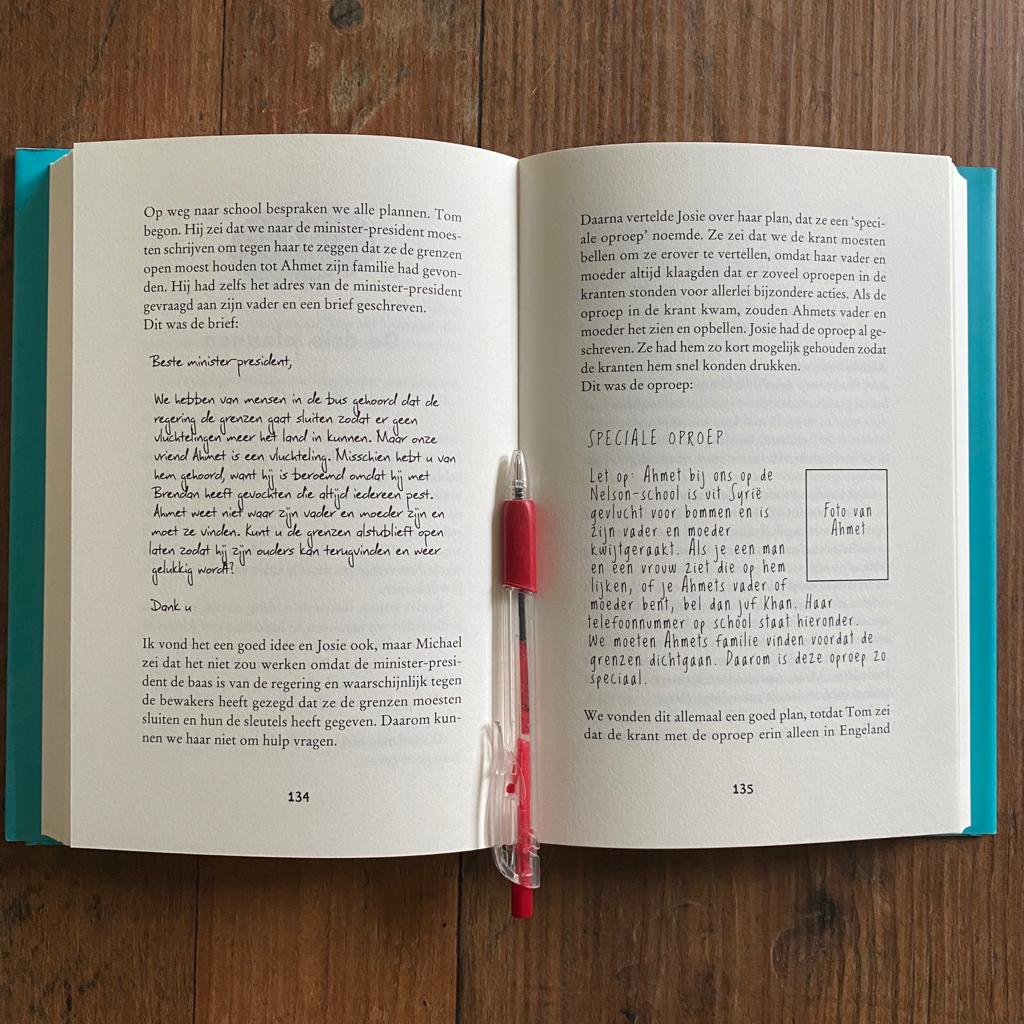 Op weg naar school bespraken we alle plannen. Tom
begon. Hij zei dat we naar de minister-president moes-
ten schrijven om tegen haar te zeggen dat ze de grenzen
open moest houden tot Ahmet zijn familie had gevon-
den. Hij had zelfs het adres van de minister-president
gevraagd aan zijn vader en een brief geschreven.
Dit was de brief:
Beste minister-president,
We hebben van mensen in de bus gehoord dat de
regering de grenzen gaat sluiten zodat er geen
vluchtelingen meer het land in kunnen. Maar onze
vriend Ahmet is een vluchteling. Misschien hebt u van
hem gehoord, want hij is beroemd omdat hij met
Brendan heeft gevochten die altijd iedereen pest.
Ahmet weet niet waar zijn vader en moeder zijn en
moet ze vinden. Kunt u de grenzen alstublieft open
laten zodat hij zijn ouders kan terugvinden en weer
gelukkig wordt?
Dank u
Ik vond het een goed idee en Josie ook, maar Michael
zei dat het niet zou werken omdat de minister-presi-
dent de baas is van de regering en waarschijnlijk tegen
de bewakers heeft gezegd dat ze de grenzen moesten
sluiten en hun de sleutels heeft gegeven. Daarom kun-
nen we haar niet om hulp vragen.
134
Daarna vertelde Josie over haar plan, dat ze een ‘speci-
ale oproep’ noemde. Ze zei dat we de krant moesten
bellen om ze erover te vertellen, omdat haar vader en
moeder altijd klaagden dat er zoveel oproepen in de
kranten stonden voor allerlei bijzondere acties. Als de
oproep in de krant kwam, zouden Ahmets vader en
moeder het zien en opbellen. Josie had de oproep al ge-
schreven. Ze had hem zo kort mogelijk gehouden zodat
de kranten hem snel konden drukken.
Dit was de oproep:
SPECIALE OPROEP
Let op: Ahmet bij ons op de
Nelson-school is uit Syrië
gevlucht voor bommen en is
zijn vader en moeder
kwijtgeraakt. Als je een man
en een vrouw ziet die op hem
lijken, of je Ahmets vader of
moeder bent, bel dan juf Khan. Haar
telefoonnummer op school staat hieronder.
We moeten Ahmets familie vinden voordat de
grenzen dichtgaan. Daarom is deze oproep zo
speciaal.
Foto van
Ahmet
We vonden dit allemaal een goed plan, totdat Tom zei
dat de krant met de oproep erin alleen in Engeland
135